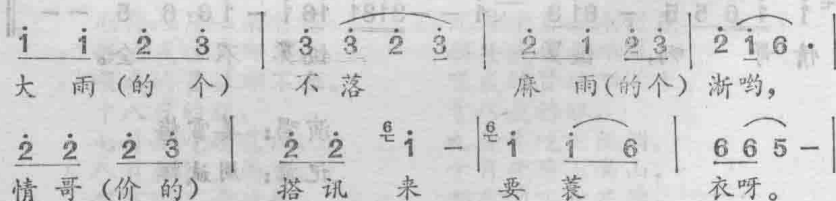 i i 2 3 | 3 3 2 3 | 2 i 2 3 | 2 i 6 · |
大 雨(的 个) 不 落 麻 雨(的个) 淅哟,
2 2 2 3 | 2 2 i - | i i 6 | 6 6 5 - |
情 哥(价 的) 搭 讯 来 要 蓑 衣呀。